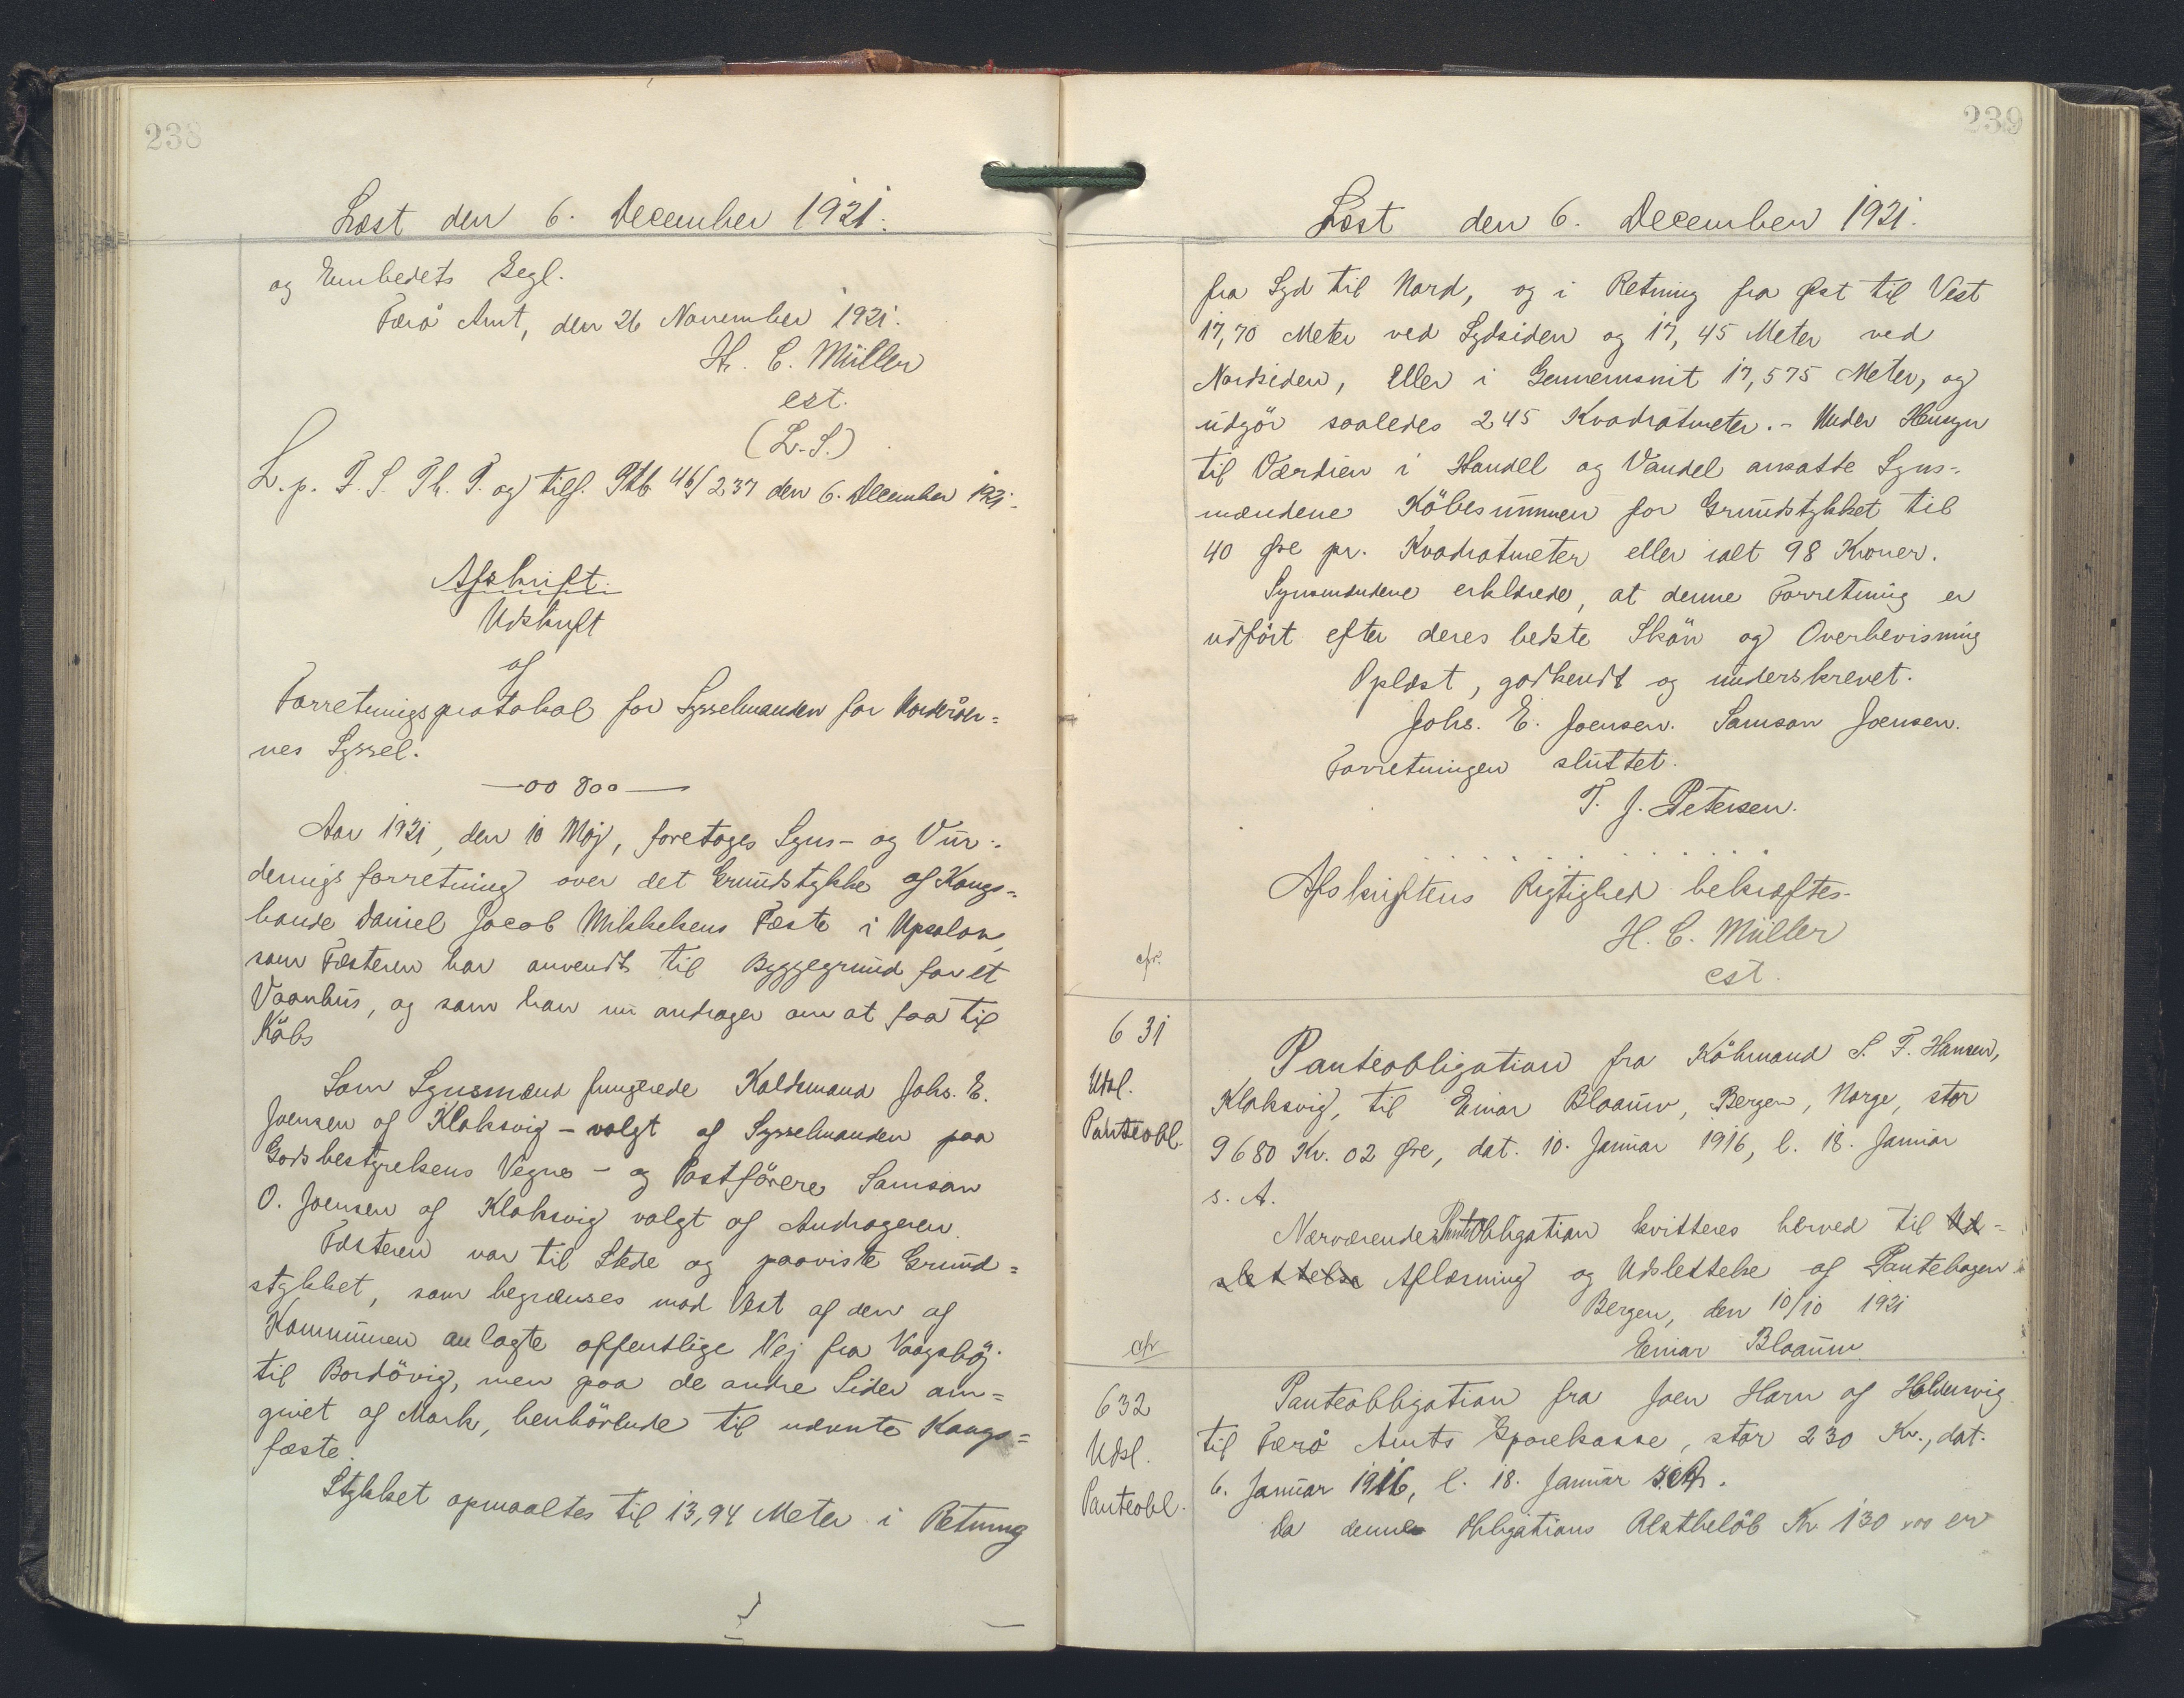 238
Læst den 6. December 1921.
og Embedets Segl.
Færö Amt, den 26 November 1921.
H. C. Müller
est.
(L.S.)
L. p. F. S. Th. T. og tilf. Ptb. 46/237 den 6. December 1921.
Afskrift.
Udskrift
af
Forretningsprotokol for Sysselmanden for Norderöer=
nes Syssel.
—oo8oo—
Aar 1921, den 10 Maj, foretoges Syns- og Vur-
deringsforretning over det Grundstykke af Kongs=
bonde Daniel Jacob Mikkelsens Fæste i Upsalon,
som Fæsteren har anvendt til Byggegrund for et
Vaanhus, og som han nu andrager om at faa til
Köbs
Som Synsmænd fungerede Kaldsmand Johs. E.
Joensen af Klaksvig - valgt af Sysselmanden paa
Godsbestyrelsens Vegne - og Postförere Samson
O. Joensen af Klaksvig valgt af Andrageren.
Fæsteren var til Stede og paaviste Grund=
stykket, som begrænses mod Øst af den af
Kommunen anlagte offentlige Vej fra Vaagsböj
til Bordövig, men paa de andre Sider om=
givet af Mark, henhörende til nævnte Kongs=
fæste.
Stykket opmaaltes til 13,94 Meter i Retning
239
Læst den 6. December 1921.
fra Syd til Nord, og i Retning fra Øst til Vest
17,70 Meter ved Sydsiden og 17,45 Meter ved
Nordsiden, eller i Gennemsnit 17,575 Meter, og
udgör saaledes 245 Kvadratmeter. - Under Hensyn
til Værdien i Handel og Vandel ansatte Syns=
mændene Köbesummen for Grundstykket til
40 Øre pr. Kvadratmeter eller ialt 98 Kroner.
Synsmændene erklærede, at denne Forretning er
udfört efter deres bedste Skön og Overbevisning
Oplæst, godkendt og underskrevet.
Johs. E. Joensen. Samson Joensen.
Forretningen sluttet.
T. J. Petersen.
Afskriftens Rigtighed bekræftes.
H. C. Müller
est.
cfr.
631
Udsl.
Panteobl.
Panteobligation fra Köbmand S. F. Hansen,
Klaksvig, til Einar Blaauw, Bergen, Norge, stor
9680 Kr. 02 Øre, dat. 10. Januar 1916, l. 18. Januar
s. A.
Nærværende Panteobligation kvitteres herved til Ud=
slettelse Aflæsning og Udslettelse af Pantebogen
Bergen, den 10/10 1921
Einar Blaauw
cfr
632
Udsl.
Panteobl.
Panteobligation fra Joen Ham af Haldersvig
til Færö Amts Sparekasse, stor 230 Kr., dat.
6. Januar 1916, l. 18. Januar s. A.
Da denne Obligations Restbelöb Kr. 130 er